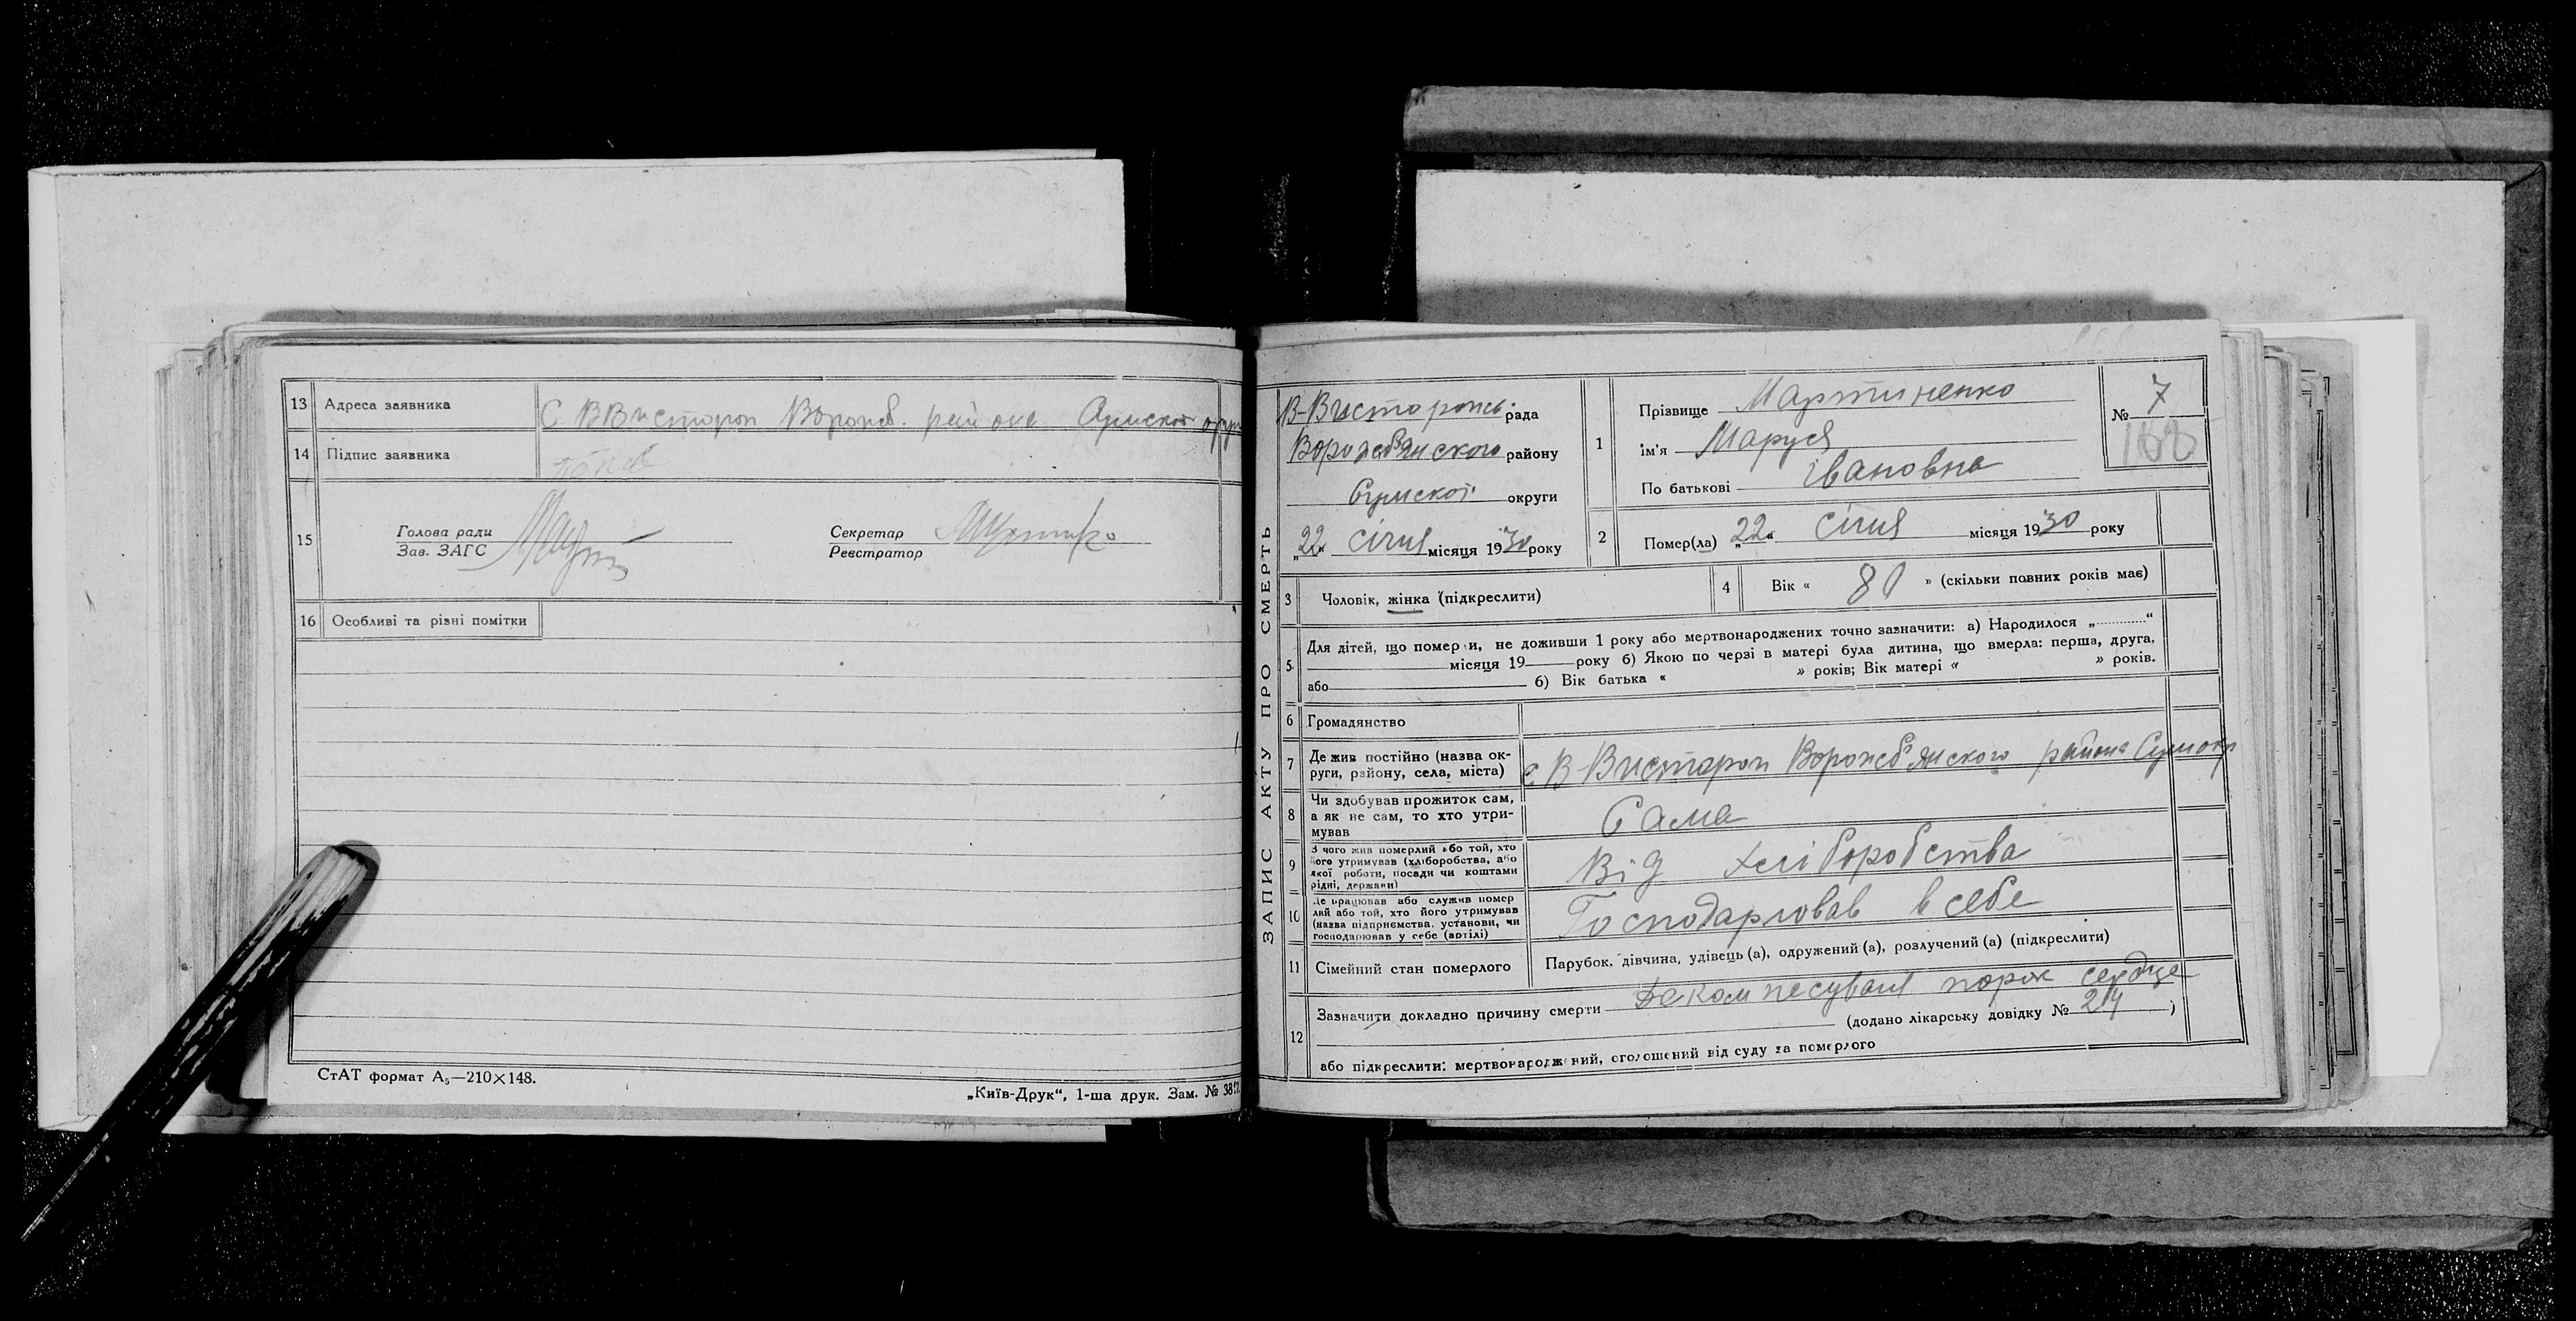 13 Адреса заявника С. ВВистороп Ворожб. района Сумской округ
14 Підпис заявника
15 Голова ради
Зав. ЗАГС
Секретар
Реєстратор
16 Особливі та різні помітки
СтАТ формат А₅—210×148.
„Київ-Друк“, 1-ша друк. Зам. № 38
ЗАПИС АКТУ ПРО СМЕРТЬ
В-Висторопсь. рада
Ворожбʼянского району
Сумской округи
„22“ січня місяця 1930 року
1 Прізвище Мартиненко
ім'я Маруся
По батькові Івановна
№ 7
168
2 Помер(ла) „22“ січня місяця 1930 року
3 Чоловік, жінка (підкреслити)
4 Вік « 80 » (скільки повних років має)
5 Для дітей, що померли, не доживши 1 року або мертвонароджених точно зазначити: а) Народилося „............“
місяця 19 року б) Якою по черзі в матері була дитина, що вмерла: перша, друга,
або 6) Вік батька « » років; Вік матері « » років.
6 Громадянство
7 Де жив постійно (назва ок-
руги, району, села, міста) с В-Вистороп Ворожбʼянского района Сум окр
8 Чи здобував прожиток сам,
а як не сам, то хто утри-
мував Сама
9 З чого жив померлий або той, хто
його утримував (хліборобства, або
якої роботи, посади чи коштами
рідні, держави) Від хліборобства
10 Де працював або служив помер
лий або той, хто його утримував
(назва підприємства, установи, чи
господарював у себе (артілі) Господарював в себе
11 Сімейний стан померлого Парубок, дівчина, удівець (а), одружений (а), розлучений (а) (підкреслити)
12 Зазначити докладно причину смерти Декомпесування порок сердце
(додано лікарську довідку № 24 )
або підкреслити: мертвонароджений, оголошений від суду за померлого